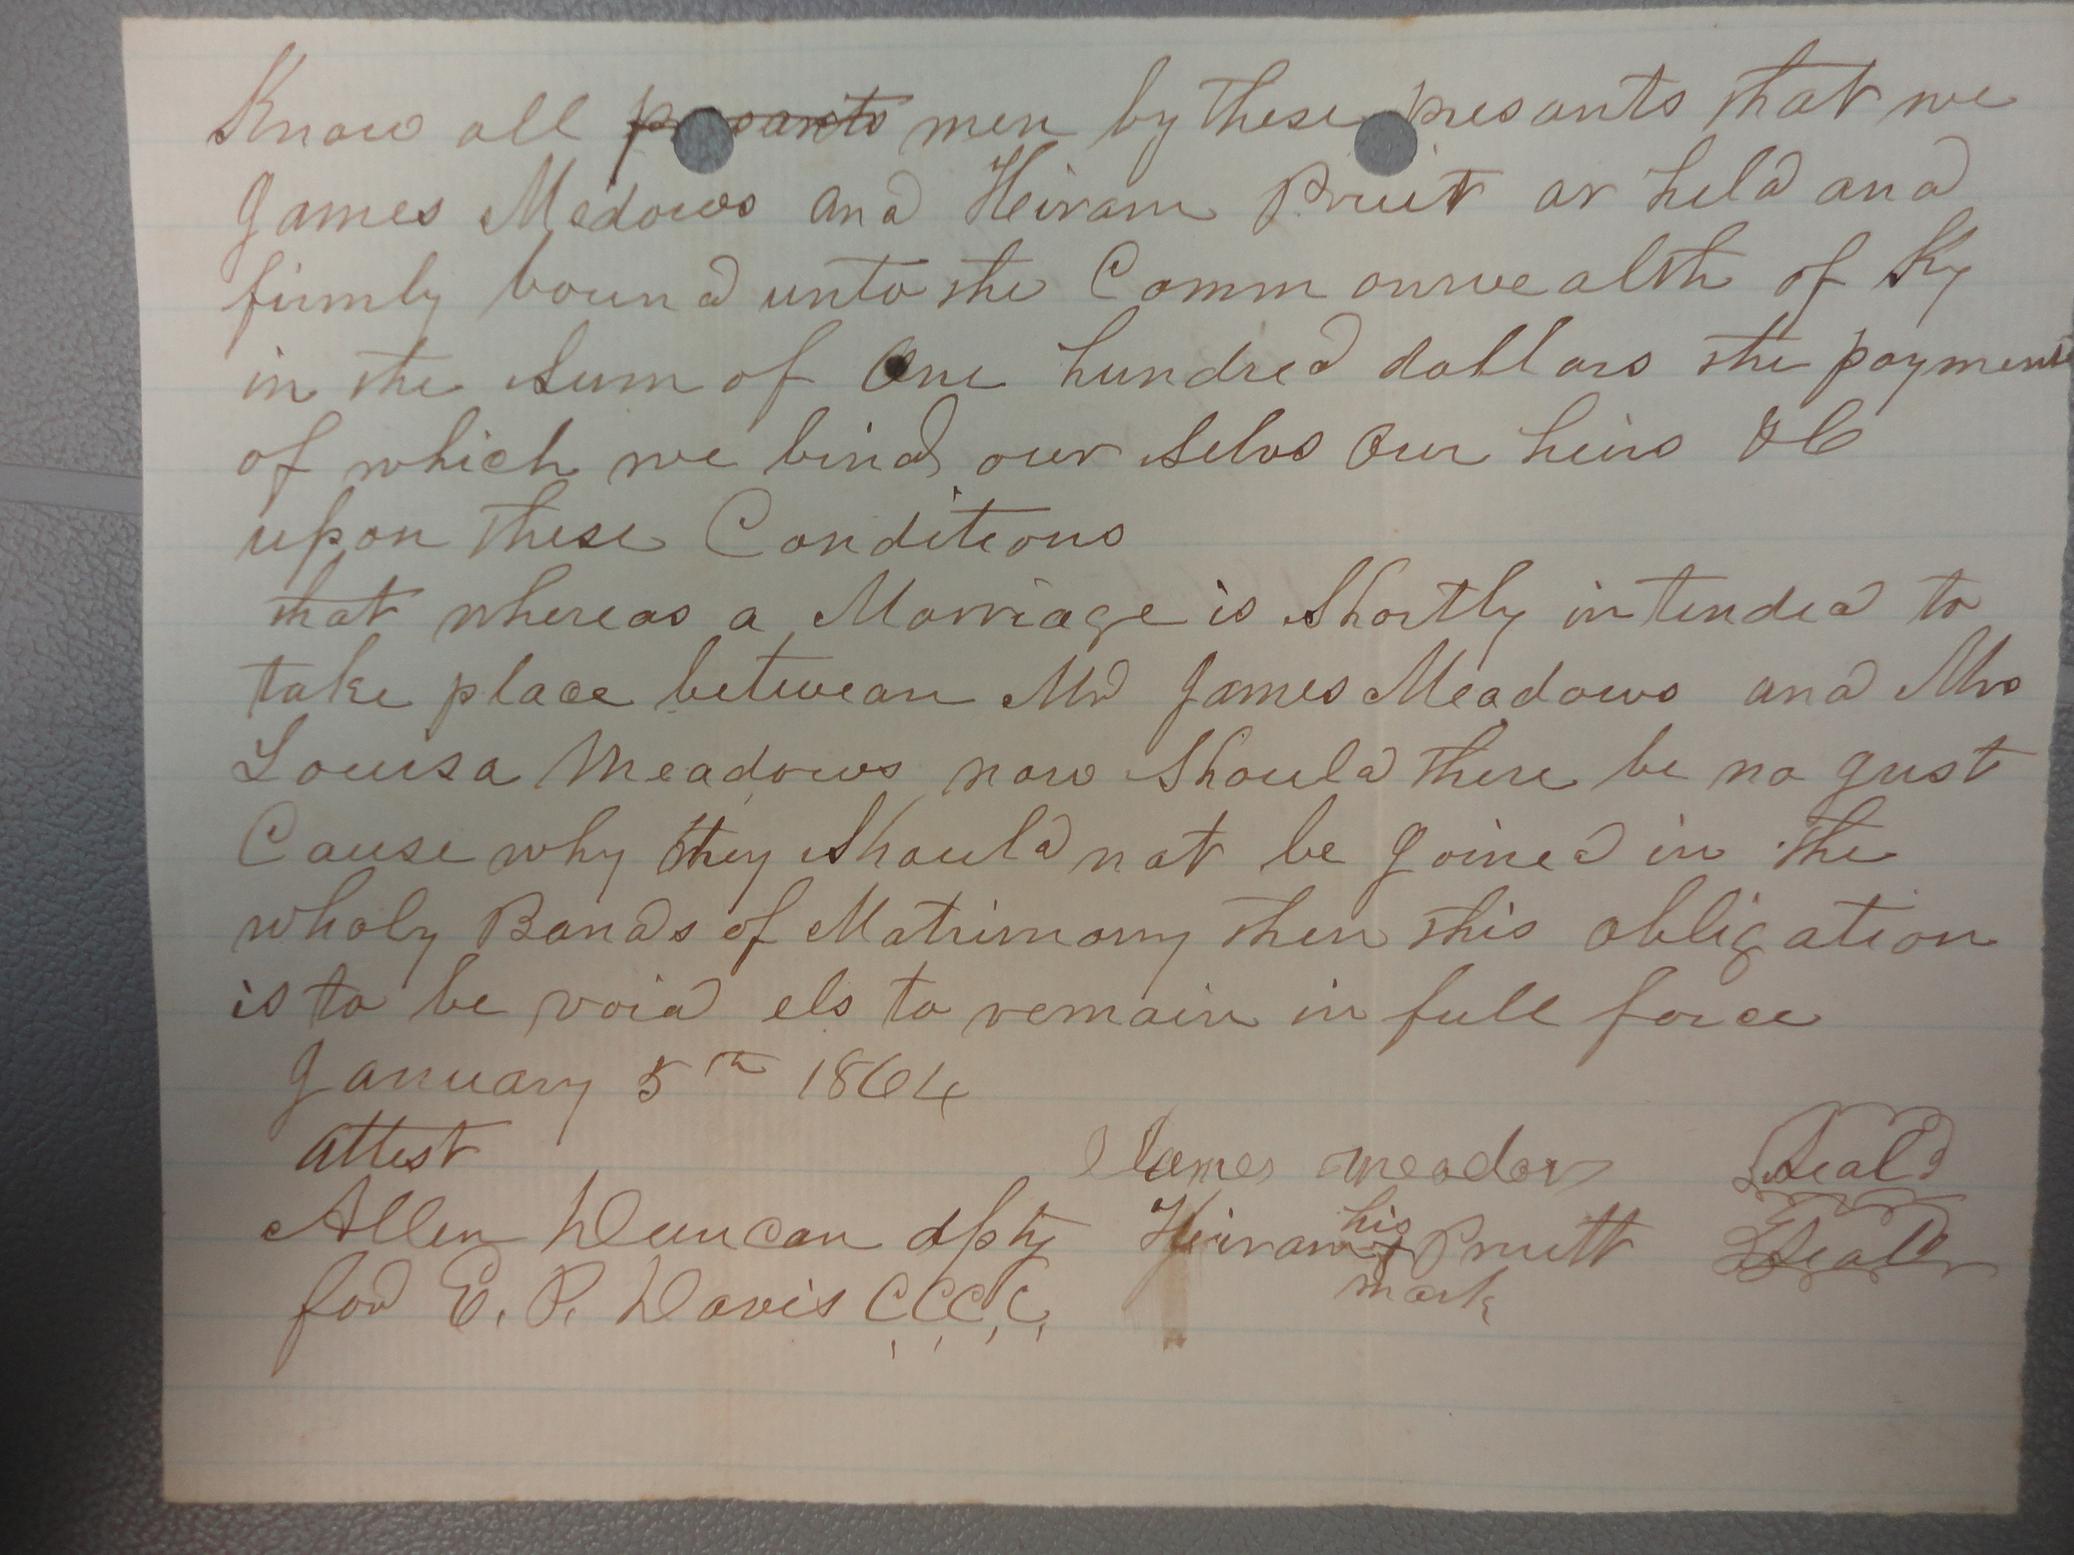 Know all presants men by these presants that we
James Medows and Heiram Pruit ar held and
firmly bound unto the Commonwealth of Ky
in the Sum of One hundred dollars the payment
of which we bind our Selvs Our heirs &C
upon these Conditions
that whereas a Marriage is Shortly intended to
take place between Mr James Meadows and Mrs
Louisa Meadows now Should there be no Just
Cause why they Should not be Joined in the
wholy Bands of Matrimony then this obligation
is to be void els to remain in full force
January 5th 1864
attest James meadors Seal
Allen Duncan dpty Heiram his x mark Pruitt Seal
for E. P. Davis C.C.C.C.